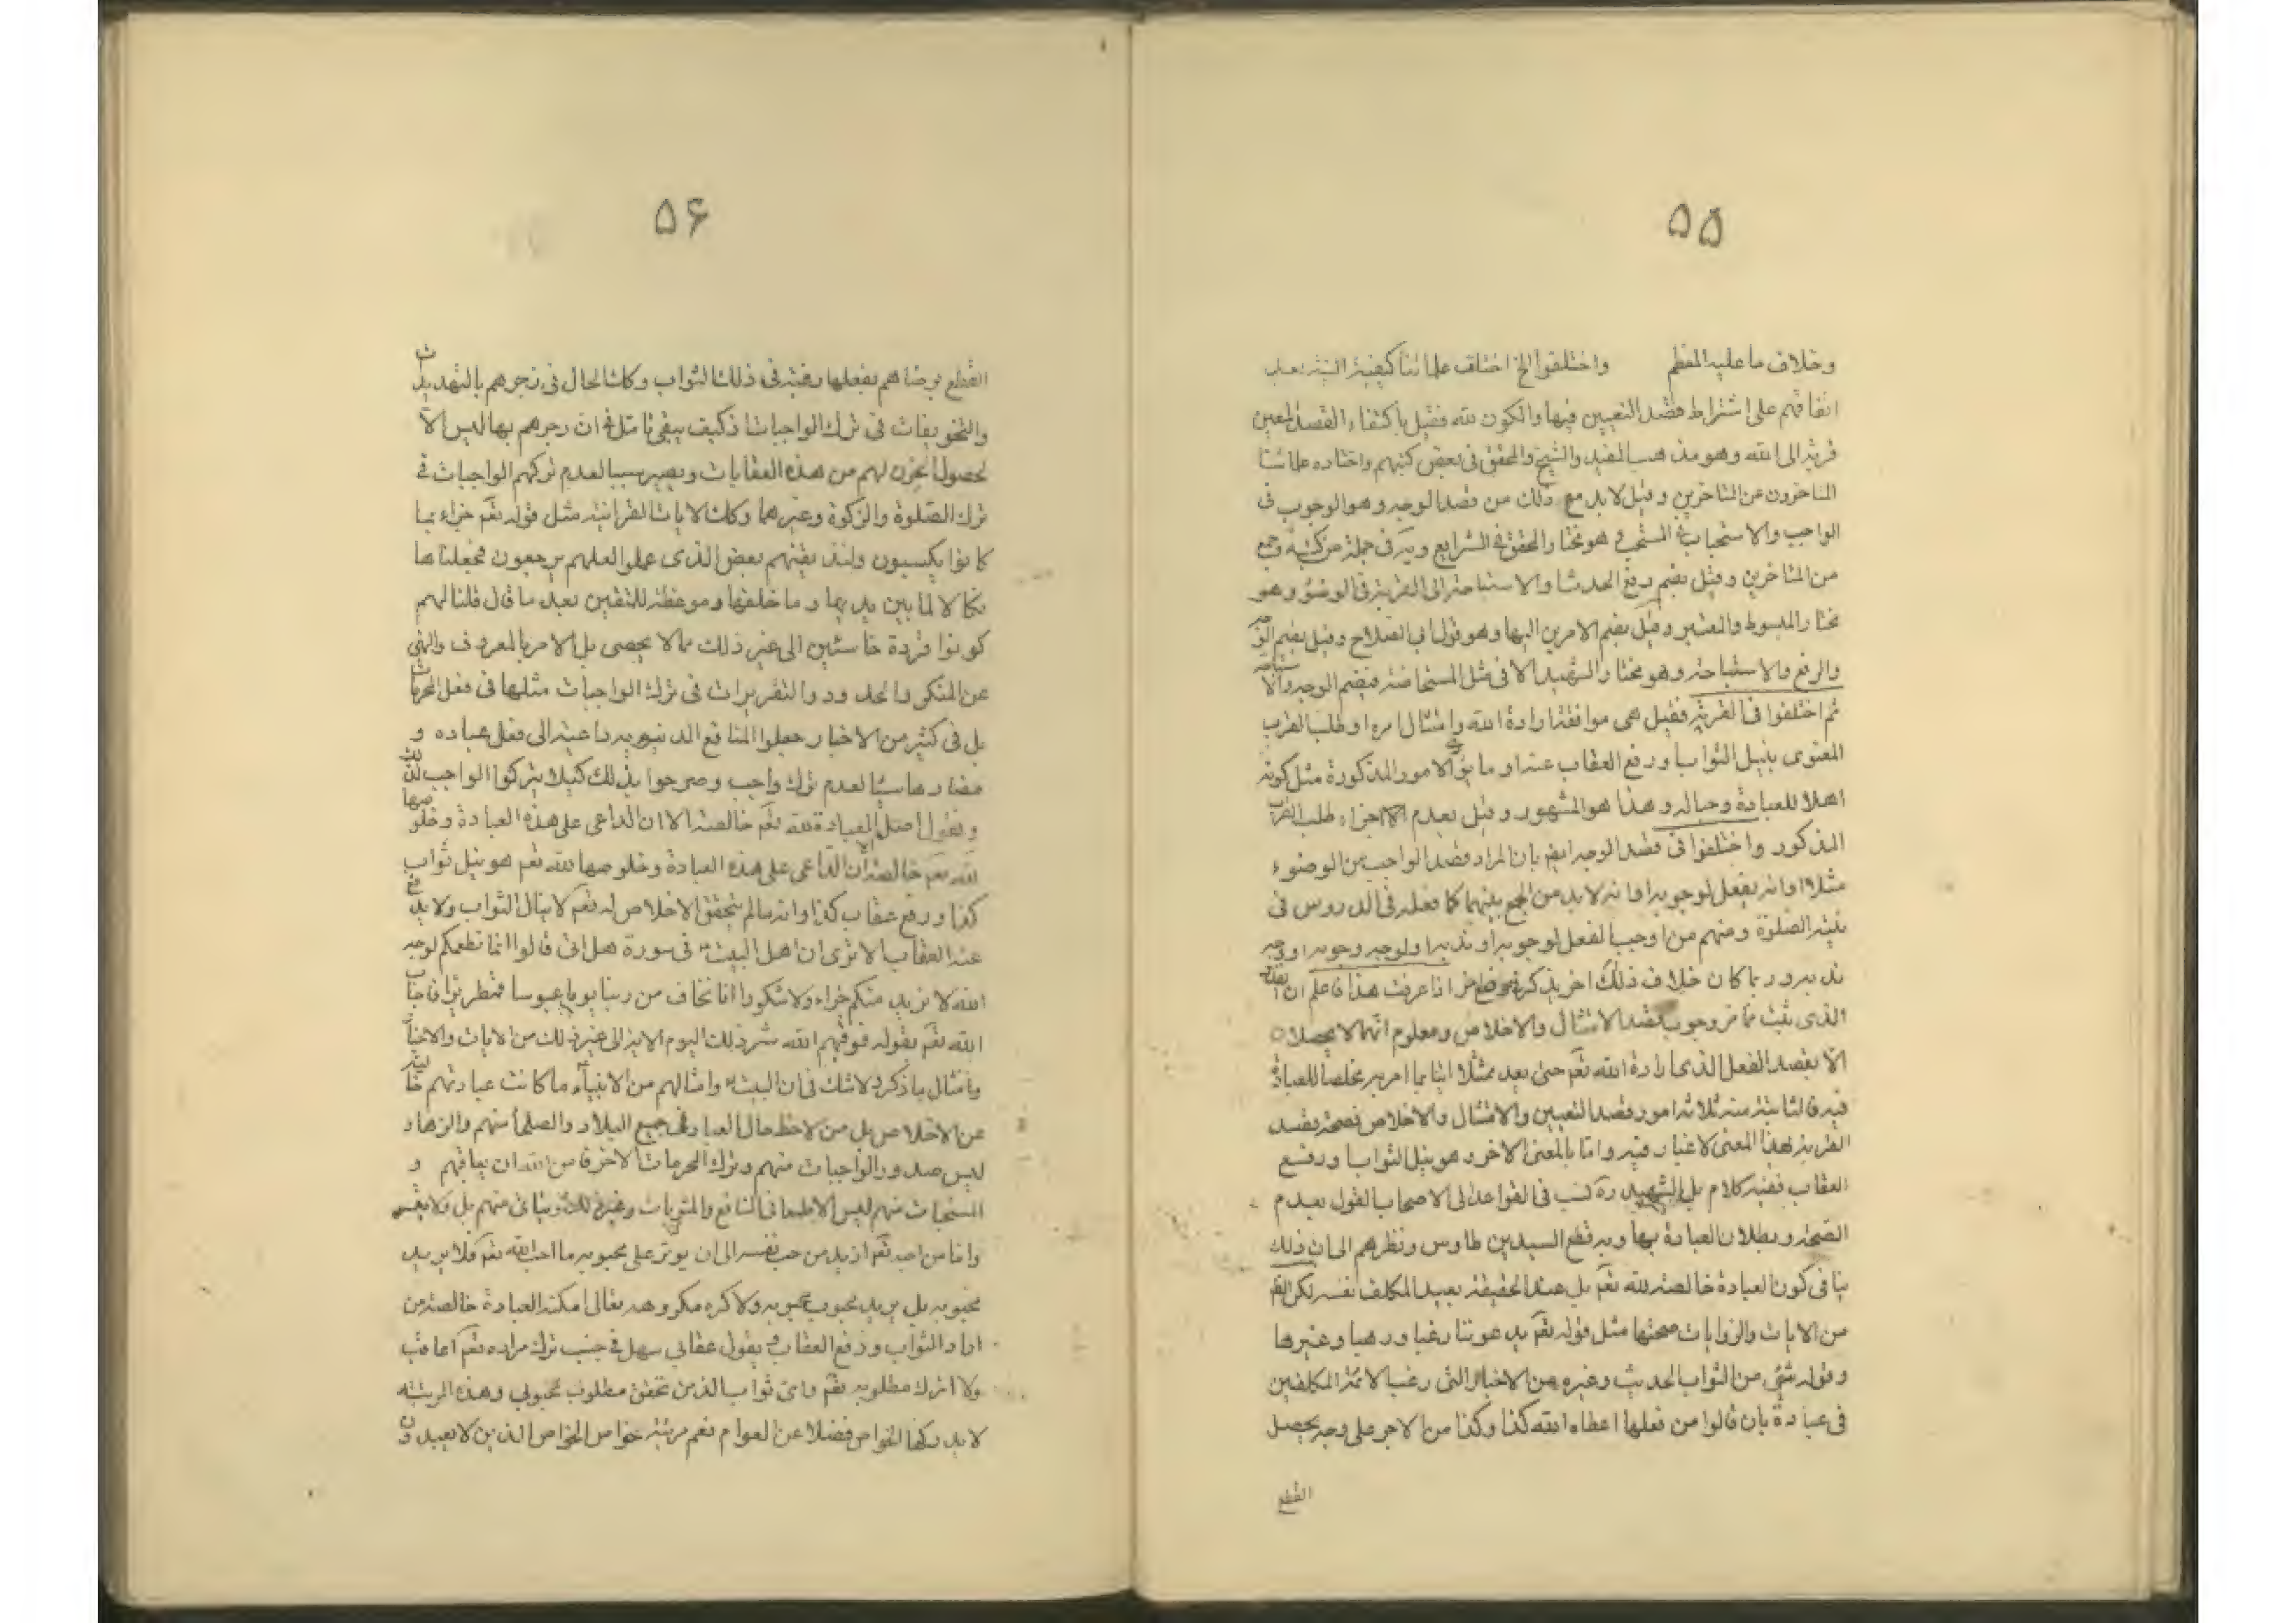 ۵۵
وخلاف ما عليه المعظم واختلفوا الخ اختلف علمائنا كيفية النية بعد
اتفاقهم على اشتراط قصد التعيين فيها والكون لله فقيل باكتفاء القصد المعين
قربة الى الله وهو مذهب المفيد والشيخ والمحقق فى بعض كتبهم واختاره علمائنا
المتاخرون عن المتاخرين وقيل لابد مع ذلك من قصد الوجه وهو الوجوب فى
الواجب والاستحباب فى المستحب هو مختار المحقق فى الشرايع ويه فى جملة من كتبه وجمع
من المتاخرين وقيل بضم رفع الحدث او الاستباحة الى القربة فى الوضوء وهو
مختار المبسوط والمعتبر وقيل بضم الامرين اليها وهو قول ابى الصلاح وقيل بضم الوجه
والرفع والاستباحة وهو مختار الشهيد الا فى مثل المستحاضة فبضم الوجه والاستباحة
ثم اختلفوا فى القربة فقيل هى موافقة ارادة الله وامتثال امره او طلب القرب
المعنوى بنيل الثواب او رفع العقاب عنه او ما الامور المذكورة مثل كونه
اهلا للعبادة وحياله وهذا هو المشهور وقيل بعدم الاجزاء طلب القرب
المذكور واختلفوا فى قصد الوجه ايضا بان المراد قصد الواجب من الوضوء
مثلا او انه يفعل لوجوبه او انه لابد من الجمع بينهما كما فعله فى الدروس فى
نية الصلوة ومنهم من اوجب الفعل لوجوبه او ندبه او لوجه وجوبه او وجه
ندبه وربما كان خلاف ذلك اخر يذكر فى اذا عرفت هذا فاعلم ان
الذى يثبت مما مر وجوب قصد الامتثال والاخلاص ومعلوم انهما لا يحصلان
الا بقصد الفعل الذى اراده الله تعم حتى يعد ممتثلا اتيا بما امر به مخلصا للعبادة
فيه فالثابتة منه ثلاثة امور قصد التعيين والامتثال والاخلاص فصحة بقصد
القربة بهذا المعنى لا غبار فيه واما بالمعنى الاخر وهو نيل الثواب او رفع
العقاب ففيه كلام بل الشهيد ره نسب فى القواعد الى الاصحاب القول بعدم
الصحة وبطلان العبادة بها وبه قطع السيد بن طاوس ونظرهم الى ان ذلك
ينافى كون العبادة خالصة لله تعم بل عند الحقيقة يعبد المكلف نفسه لكن
من الايات والروايات صحتها مثل قوله تعم يدعوننا رغبا ورهبا وغيرها
وقوله شئ من الثواب الحديث وغيره من الاخبار التى رغب الائمة المكلفين
فى عبادة بان قالوا من فعلها اعطاه الله كذا وكذا من الاجر على وجه يحصل
القطع
۵۶
القطع برضاهم بفعلها رغبة فى ذلك الثواب وكذا الحال فى زجرهم بالتهديدات
والتخويفات فى ترك الواجبات فكيف يبقى تامل فى ان زجرهم بها ليس الا
لحصول الحزن لهم من هذه العقابات ويصير سببا لعدم تركهم الواجبات فى
ترك الصلوة والزكوة وغيرهما وكذا الايات القرانية مثل قوله تعم جزاء بما
كانوا يكسبون ولنذيقنهم بعض الذى عملوا لعلهم يرجعون فجعلناها
نكالا لما بين يديها وما خلفها وموعظة للمتقين بعد ما قال قلنا لهم
كونوا قردة خاسئين الى غير ذلك مما لا يحصى بل الامر بالمعروف والنهى
عن المنكر والحدود والتعزيرات فى ترك الواجبات مثلها فى فعل المحرمات
بل فى كثير من الاخبار جعلوا المنافع الدنيويه داعية الى فعل عباده و
مضارها سببا لعدم ترك واجب وصرحوا بذلك كيلا يتركوا الواجب لذلك
ونقول اصل العبادة لله تعم خالصة الا ان الداعى على هذه العبادة وخلوصها
لله تعم خالصة الا ان الداعى على هذه العبادة وخلوصها لله تعم هو نيل ثواب
كذا ورفع عقاب كذا وانه ما لم يتحقق الاخلاص له تعم لا ينال الثواب ولا يدفع
عنه العقاب الا ترى ان اهل البيت فى سورة هل اتى قالوا انما نطعمكم لوجه
الله لا نريد منكم جزاء ولا شكورا انا نخاف من ربنا يوما عبوسا قمطريرا فاجاب
الله تعم بقوله فوقيهم الله شر ذلك اليوم الاية الى غير ذلك من الايات والاخبار
وامثال ما ذكره لا شك فى ان البيت وامثالهم من الانبياء ما كانت عبادتهم خالية
عن الاخلاص بل من لاحظ حال العباد فى جميع البلاد والصلحاء منهم والزهاد
ليس صدور الواجبات منهم وترك المحرمات الا خوفا من الله ان يعاقبهم و
المستحبات منهم ليس الا طمعا فى المنافع والمثوبات وغير ذلك منهم بل
واما من احب تعم ازيد من حب نفسه الى ان يوثر على محبوبه ما احب الله تعم فلا يريد
محبوبه بل يريد محبوب محبوبه ولا كره مكروهه تعالى امكنه العبادة خالصة من
اراد الثواب ودفع العقاب بقول عقابى سهل فى جنب ترك مراده تعم اعاقب
ولا اترك مطلوبه تعم واى ثواب الذ من تحقق مطلوب محبوبى وهذه المرتبة
لا يدركها الخواص فضلا عن العوام نعم مرتبة خواص الخواص الذين لا يعبدون